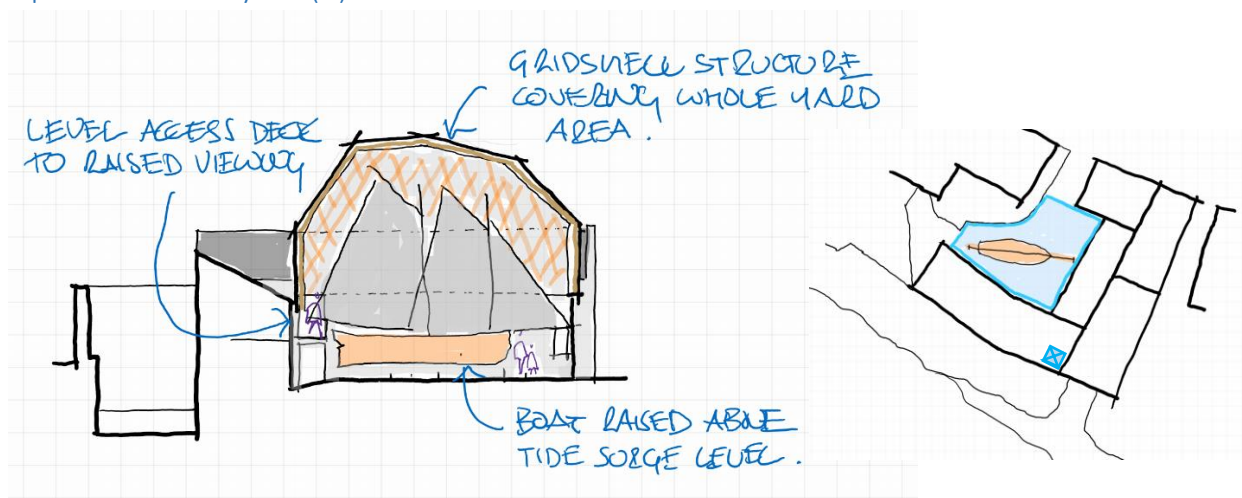 GRIDSHELL STRUCTURE
COVERING WHOLE YARD
AREA.
LEVEL ACCESS DECK
TO RAISED VIEWING
BOAT RAISED ABOVE
TIDE SURGE LEVEL.